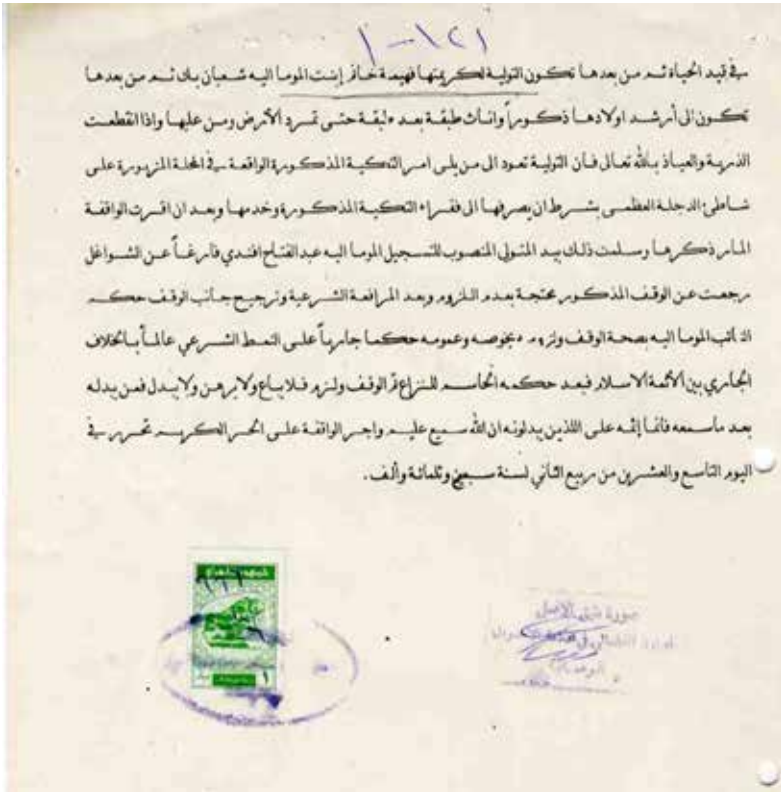 ١٢١-١
في قيد الحياة ثم من بعدها تكون التولية لكريمتها فهيمة خانم إبنت الموما اليه شعبان بك ثم من بعدها
تكون الى أرشد اولادها ذكوراً واناث طبقة بعد طبقة حتى تمرد الأرض ومن عليها واذا انقطعت
الذرية والعياذ بالله تعالى فأن التولية تعود الى من يلي امر التكية المذكورة الواقعة في المحلة المزبورة على
شاطئ الدجلة العظمى بشرط ان يصرفها الى فقراء التكية المذكورة وخدمها وبعد ان اقرت الواقفة
المار ذكرها وسلمت ذلك بيد المتولي المنصوب للتسجيل الموما اليه عبد الفتاح افندي فارغاً عن الشواغل
رجعت عن الوقف المذكور محتجة بعدم اللزوم وبعد المرافعة الشرعية وترجيح جانب الوقف حكم
النائب الموما اليه بصحة الوقف ولزومه بخوصه وعمومه حكما جارياً على النمط الشرعي عالماً بالخلاف
الجاري بين الأئمة الاسلام فبعد حكمه الحاسم للنزاع تم الوقف ولزم فلا يباع ولا يرهن ولا يبدل فمن بدله
بعد ماسمعه فأنما إثمه على اللذين يبدلونه ان الله سميع عليم واجر الواقفة على الحر الكريم تحرر في
اليوم التاسع والعشرين من ربيع الثاني لسنة سبعين وثلمائة وألف.
صورة طبق الاصل
١